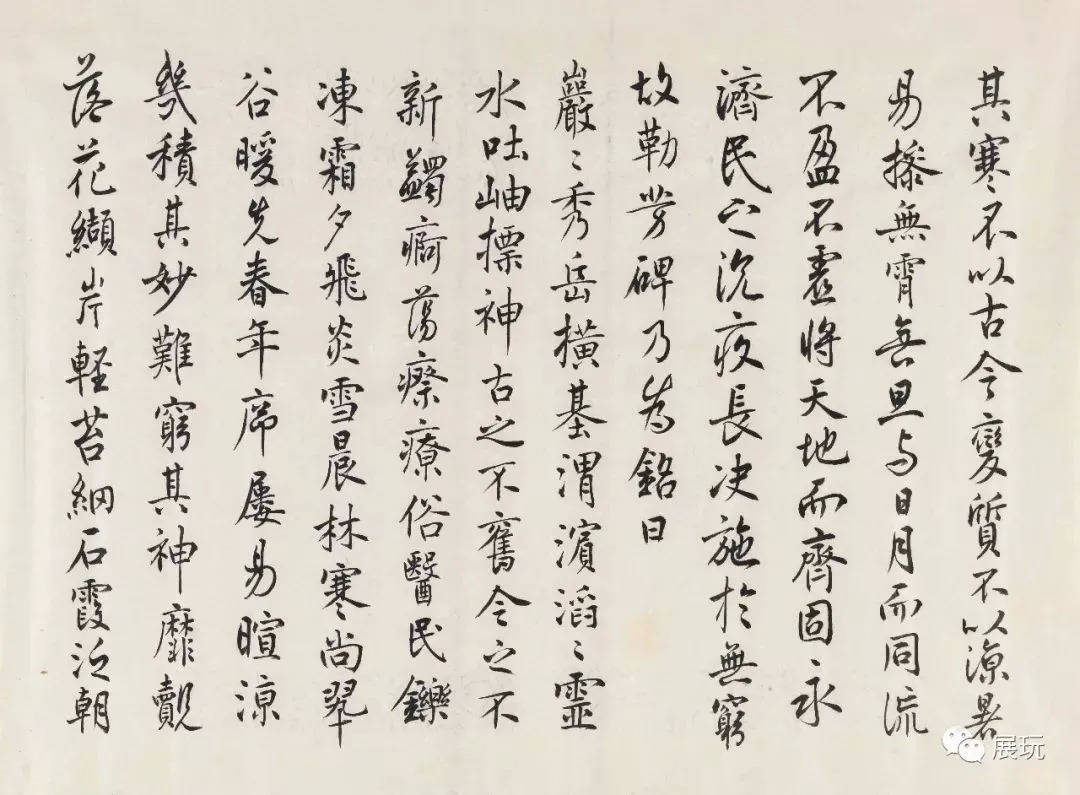 其寒不以古今變質不以涼暑
易操無霄無旦与日月而同流
不盈不虛將天地而齊固永
濟民之沉疫長决施於無窮
故勒芳碑乃為銘曰
巖〻秀岳橫基渭濱滔〻靈
水吐岫摽神古之不舊今之不
新蠲痾蕩瘵療俗醫民鑠
凍霜夕飛炎雪晨林寒尚翠
谷暖先春年序屢易暄涼
幾積其妙難窮其神靡覿
落花纈岸輕苔網石霞泛朝
展玩